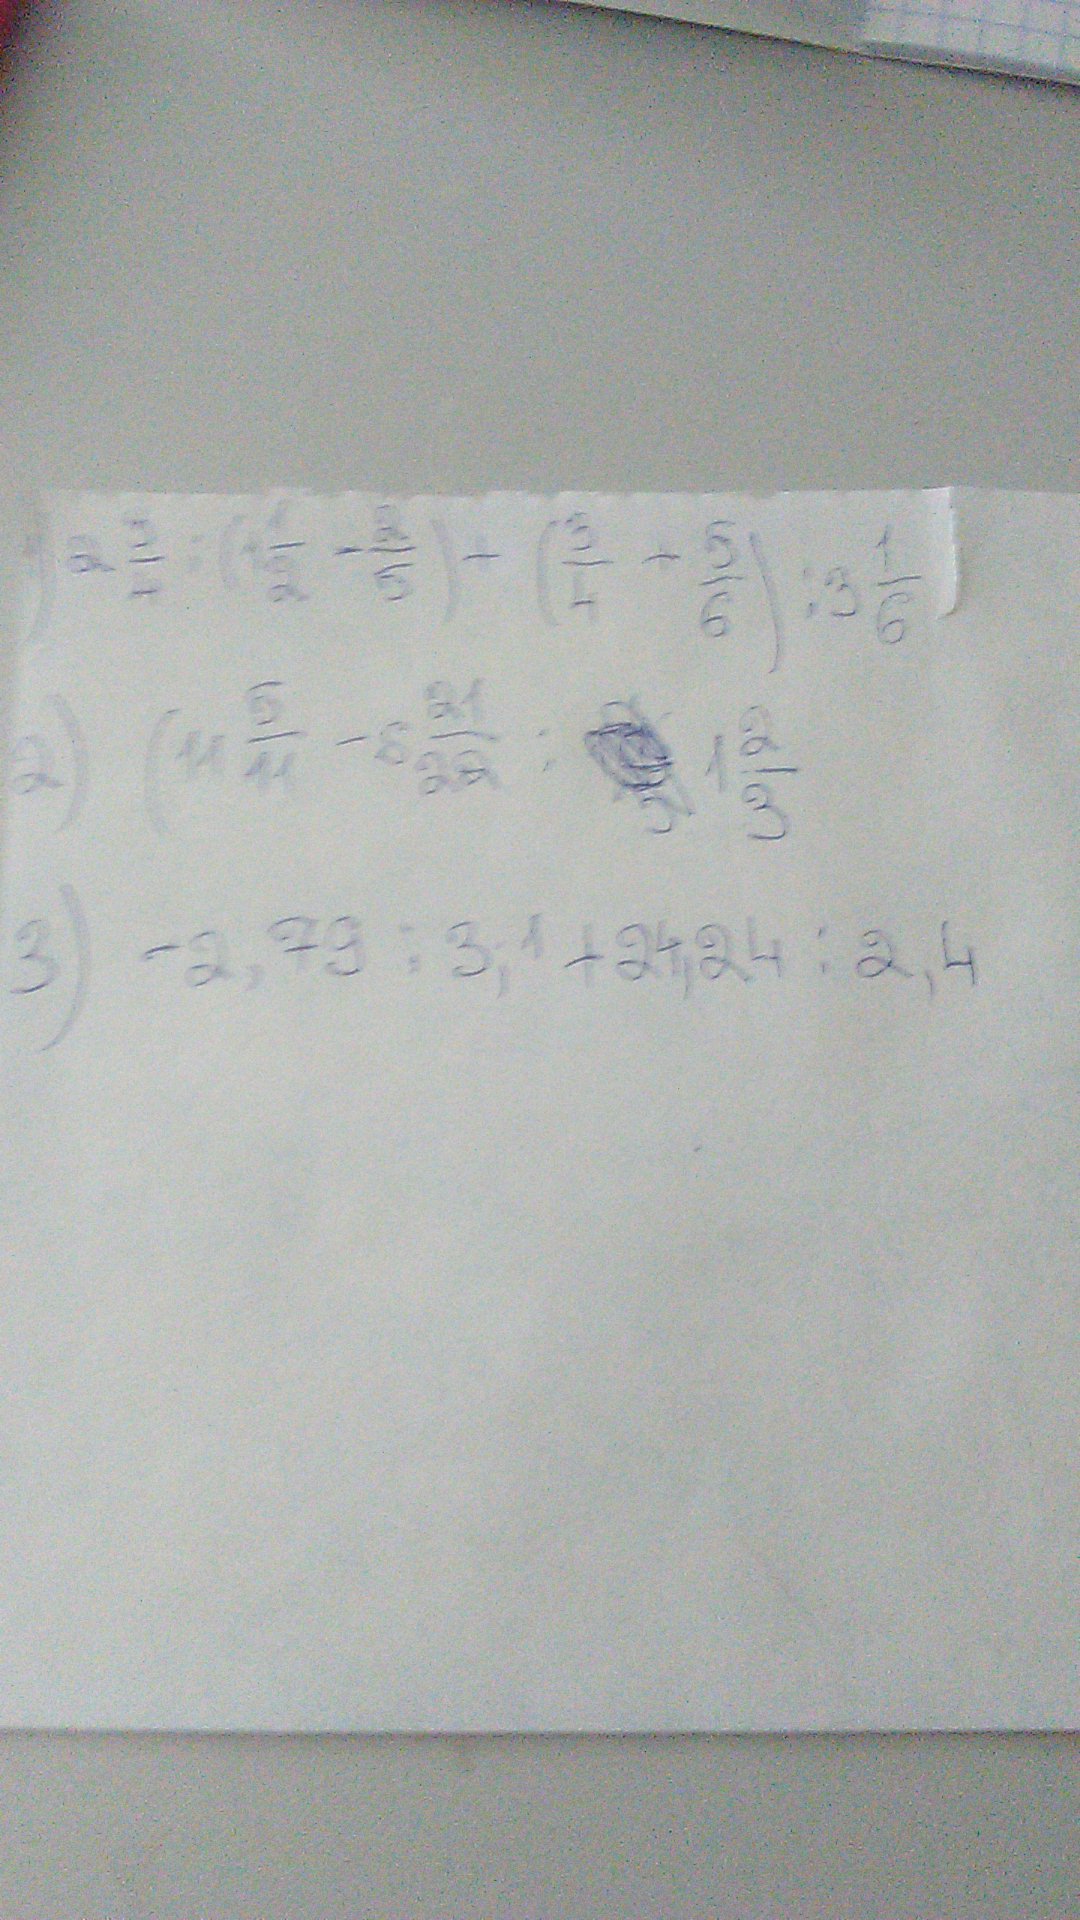 1) 2 3/4 : (1 1/2 - 2/5) + (3/4 + 5/6) : 3 1/6
2) (11 5/11 - 8 21/22 : 1 2/3
3) -2,79 : 3,1 + 24,24 : 2,4